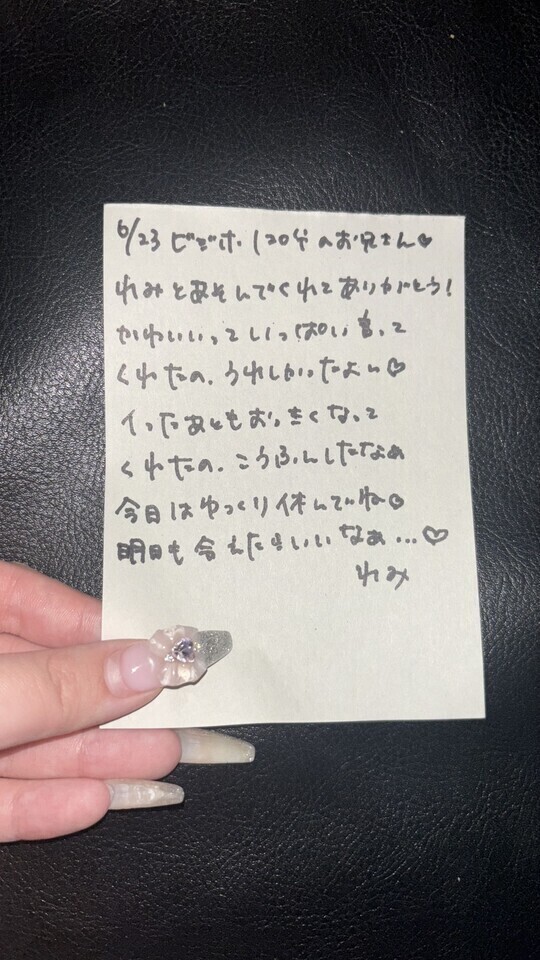 6/23 ビジホ 120分のお兄さん♡
れみとあそんでくれてありがとう!
かわいいっていっぱい言って
くれたの、うれしかったよい♡
イったあともおっきくなって
くれたの、こうふんしたなぁ
今日はゆっくり休んでね♡
明日も会えたらいいなぁ...♡
れみ